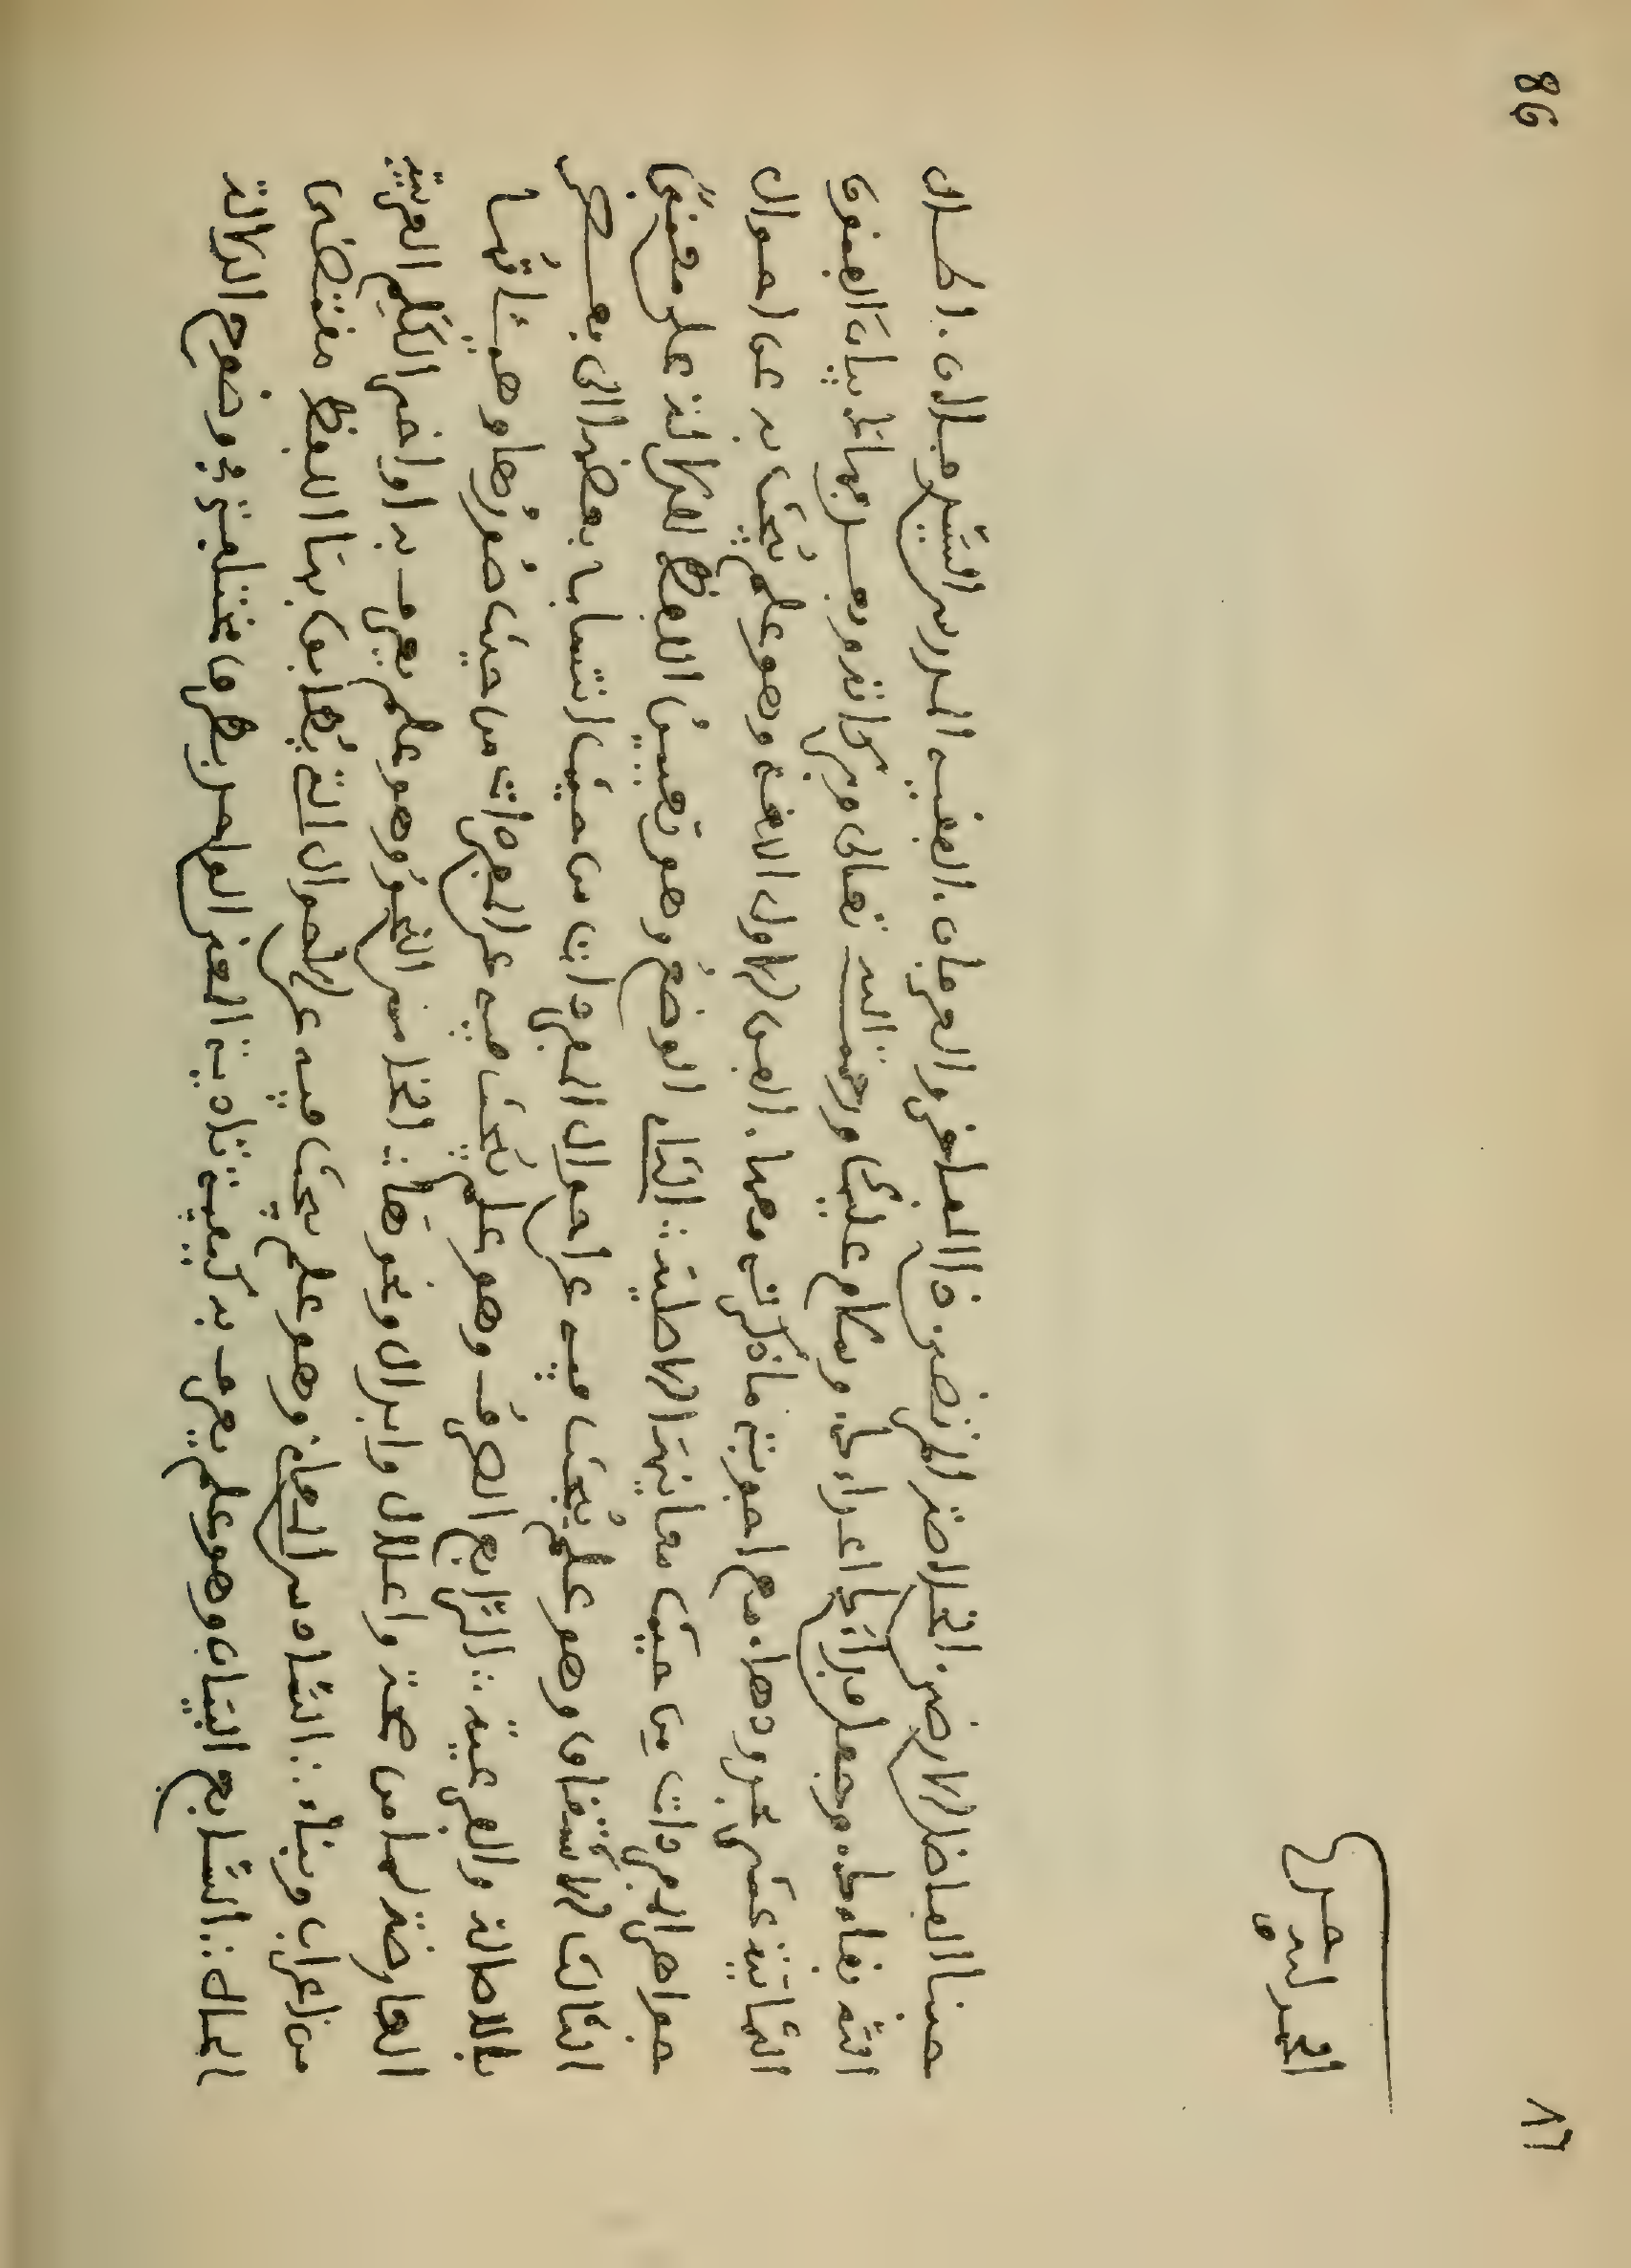 86
٨٦
الحمد لله
حبنا الفاضل الارضى. المرتضى. ذا المفاخر والعرفان. الفقيه المدرس السيد
الله بقاءك. وجعل اعداءك. وسلام عليك ورحمت الله تعالى وبركاته وبعد فهاك بيان الفنون
الثمانية عشر بحدودها. مع اجوبة ما ذكرت معها. الفن الاول اللغة وهو علم يُبحث به عن احوال
جواهر المفردات من حيث معانيها الاصلية ∴ الثاني الوضعُ وهو تعيينُ اللفظ للدلالة على معنًى
الثالث الاشتقاق وهو علم يُبحث فيه عن احوال المفردات من حيث انتساب بعضها الى بعـض
بالاصالة والفرعية ∴ الرّابع الصرفُ وهو علم يُبحث فيه عن المفردات من حيث صُورُها وهيئاتُها
العارضة لها من صحة واعلال وابدال ونحوها ∴ الخامس النحوُ وهو علم يعرف به اواخر الكلم العربيّة
من اعراب وبناء ∴ السّادس المعاني وهو علم يبحث فيه عن الاحوال التي يُطابق بها اللفظ مقتضى
الحال ∴ السّابع البيان وهو علم يعرف به كيفية تادية المعنى الواحد بطرق مختلفة في وضوح الدلالة